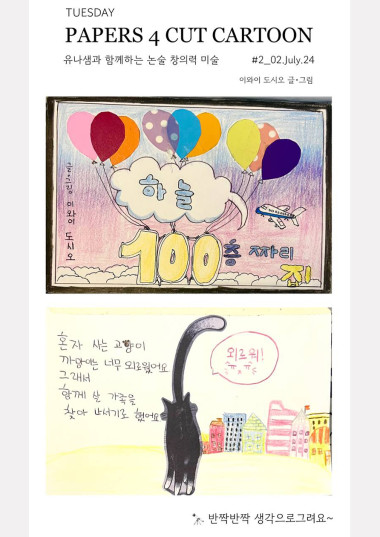 TUESDAY
PAPERS 4 CUT CARTOON
유나샘과 함께하는 논술 창의력 미술 #2_02.July.24
이와이 도시오 글•그림
글·그림 이와이 도시오
하늘
100층 짜리
집
혼자 사는 고양이
까망이는 너무 외로웠어요
그래서
함께 살 가족을
찾아 나서기로 했어요
외로워!
ㅠㅠ
반짝반짝 생각으로그려요~